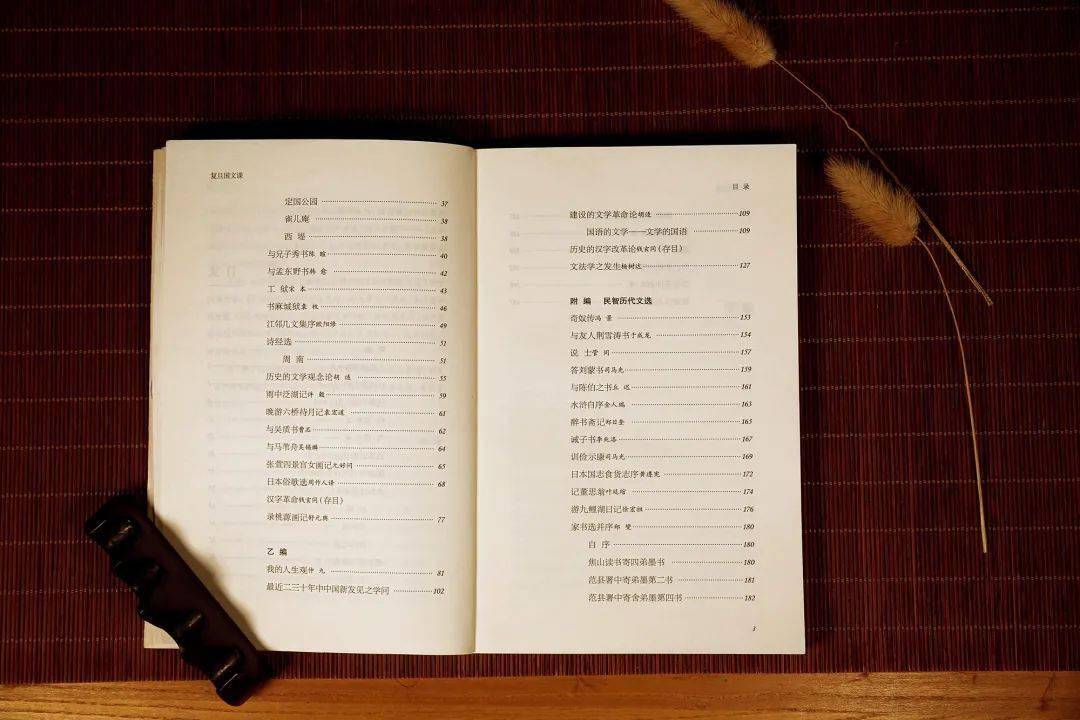 复旦国文课
定国公园 37
雀儿庵 38
西堤 38
与兄子秀书陈暄 40
与孟东野书韩愈 42
工狱宋本 43
书麻城狱袁枚 46
江邻几文集序欧阳修 49
诗经选 51
周南 51
历史的文学观念论胡适 55
雨中泛湖记 59
晚游六桥待月记袁宏道 61
与吴质书曹丕 62
与马苇舟吴锡麒 64
张萱四景宫女画记元好问 65
日本俗歌选周作人译 68
汉字革命钱玄同(存目)
录桃源画记舒元舆 77
乙编
我的人生观 81
最近二三十年中中国新发见之学问 102
目录
建设的文学革命论胡适 109
国语的文学——文学的国语 109
历史的汉字改革论钱玄同(存目)
文法学之发生杨树达 127
附编 民智历代文选
奇奴传冯景 153
与友人荆雪涛书于成龙 154
说士管同 157
答刘蒙书司马光 159
与陈伯之书丘迟 161
水浒自序金人瑞 163
醉书斋记郑日奎 165
诫子书李兆洛 167
训俭示康司马光 169
日本国志食货志序黄遵宪 172
记董思翁叶廷琯 174
游九鲤湖日记徐宏祖 176
家书选并序郑燮 180
自序 180
焦山读书寄四弟墨书 180
范县署中寄弟墨第二书 181
范县署中寄舍弟墨第四书 182
3